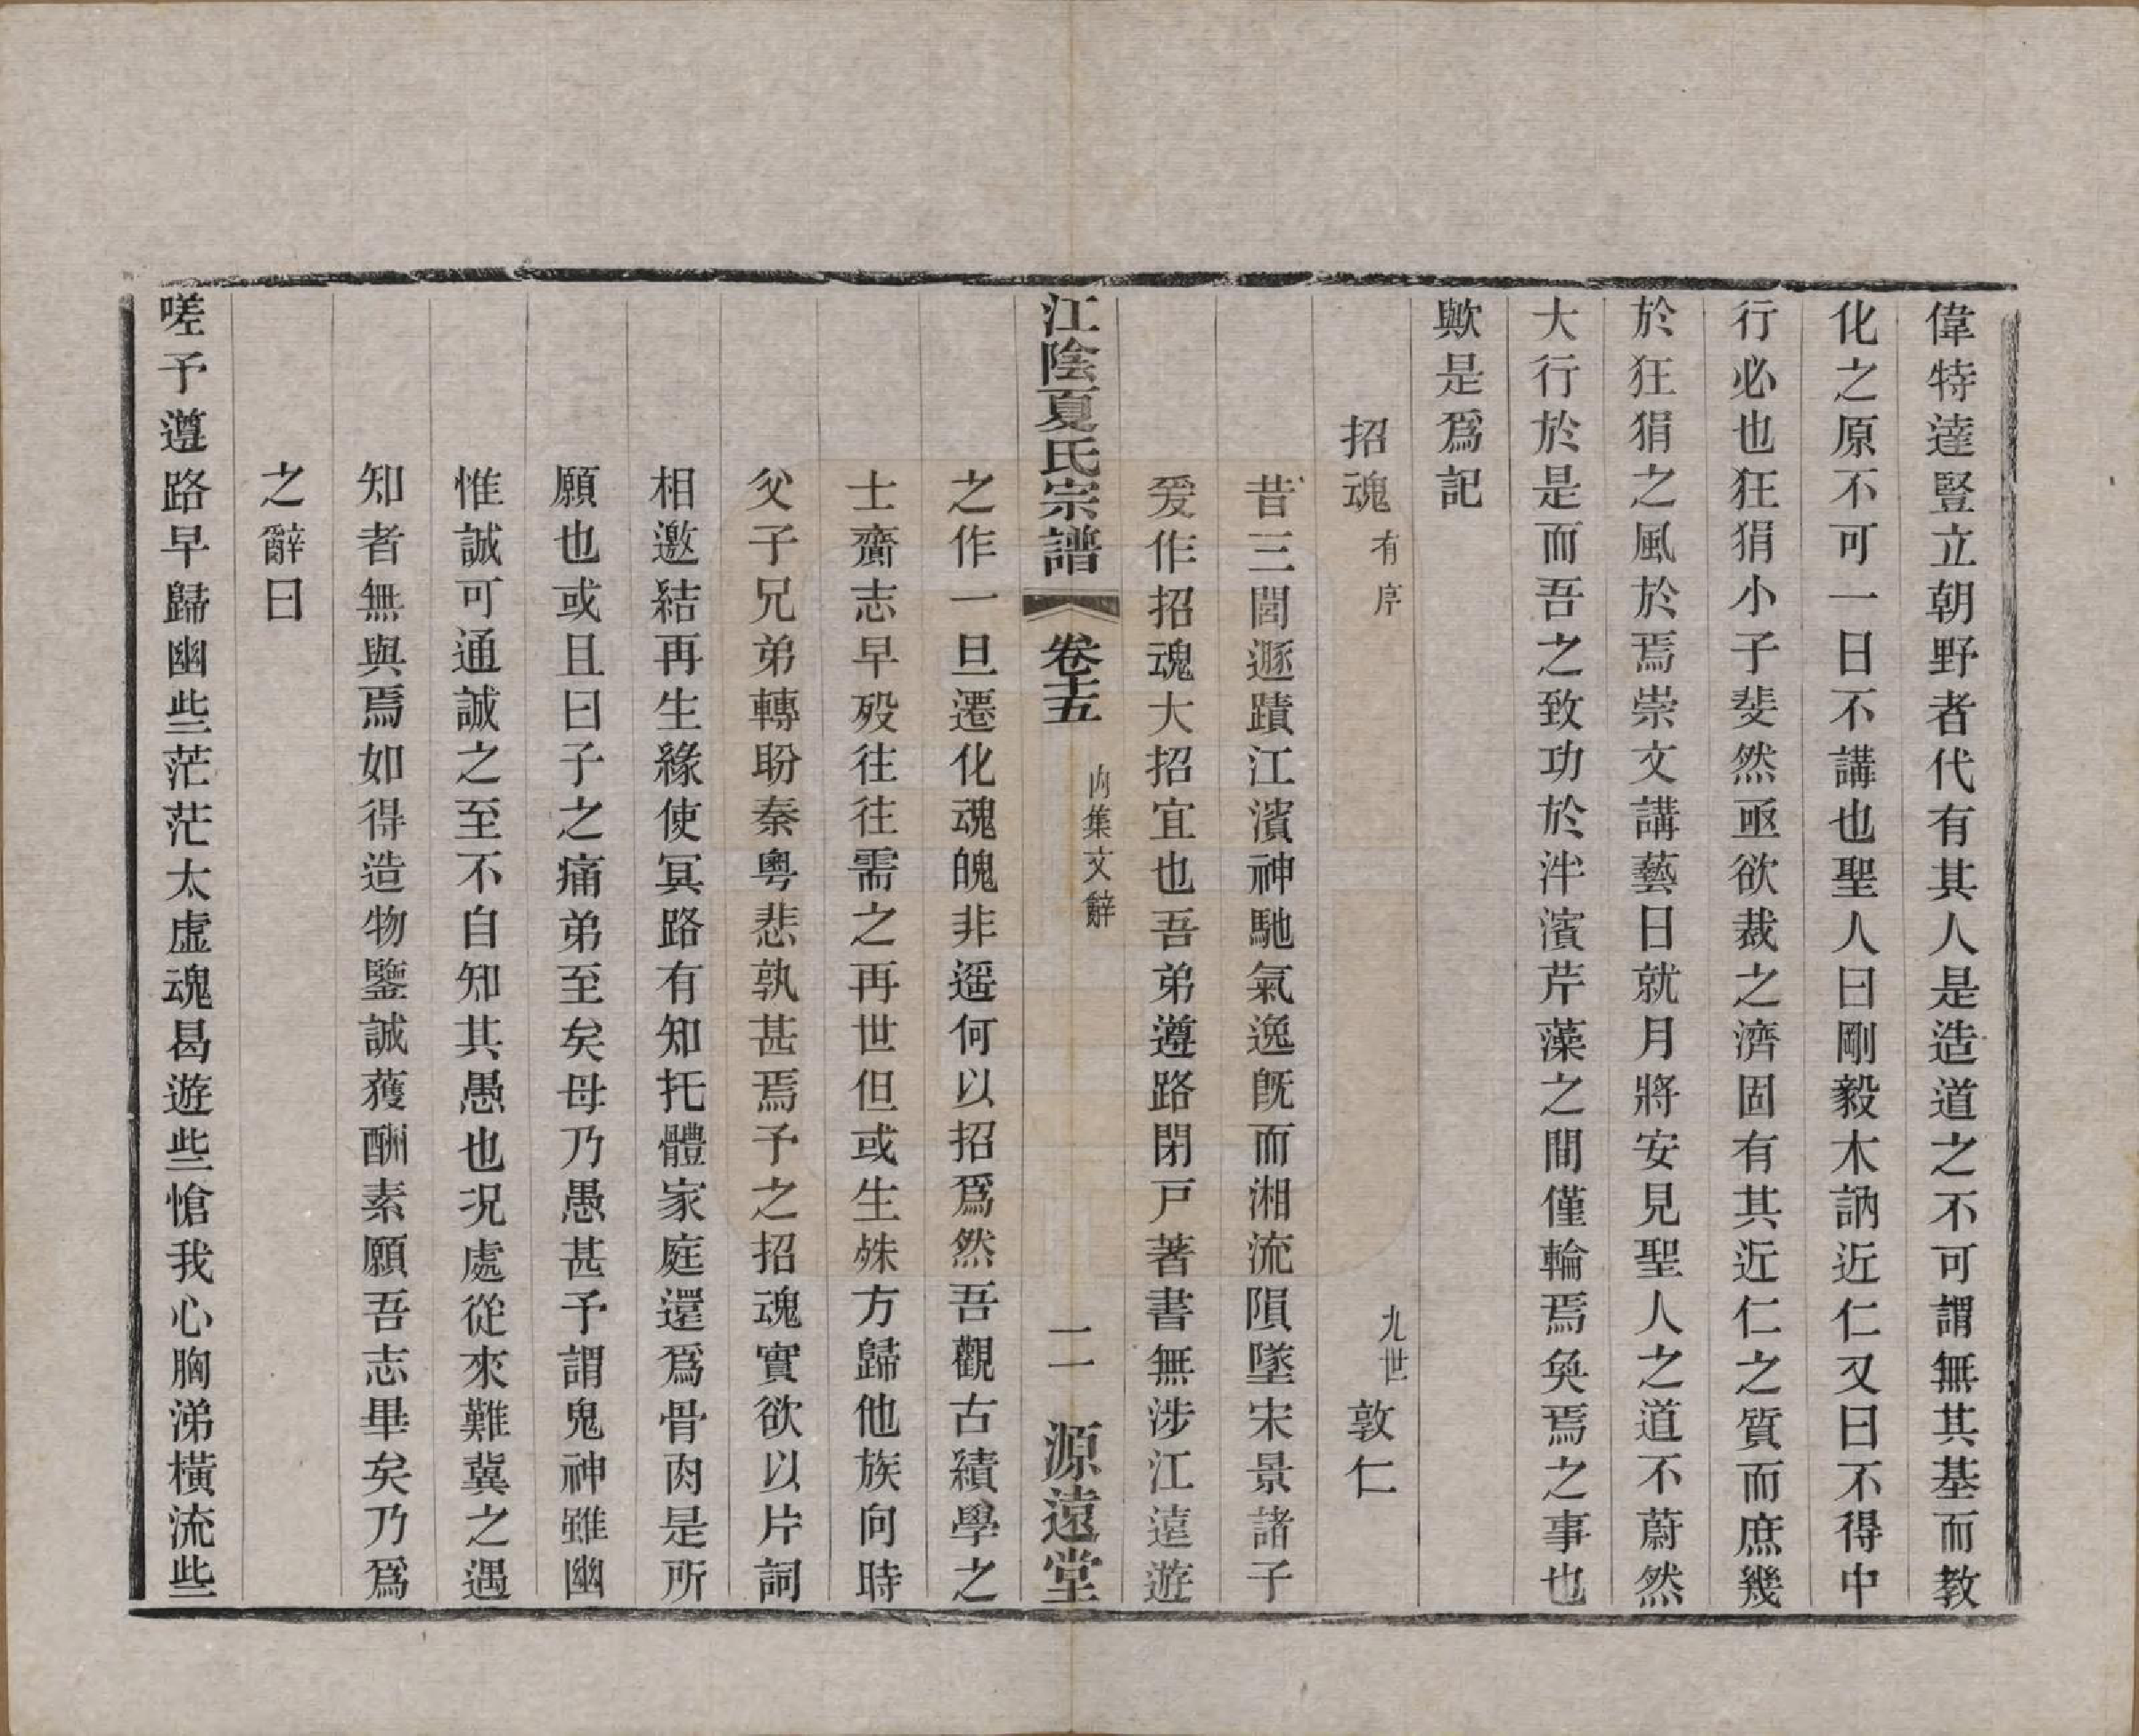 偉特達豎立朝野者代有其人是造道之不可謂無其基而教
化之原不可一日不講也聖人曰剛毅木訥近仁又曰不得中
行必也狂狷小子斐然亟欲裁之濟固有其近仁之質而庶幾
於狂狷之風於焉崇文講藝日就月將安見聖人之道不蔚然
大行於是而吾之致功於泮濱芹藻之間僅輪焉奐焉之事也
歟是爲記
招魂有序 九世敦仁
昔三閭遯蹟江濱神馳氣逸旣而湘流隕墜宋景諸子
爰作招魂大招宜也吾弟遵路閉戸著書無涉江遠遊
江陰夏氏宗譜 卷十五 內集文辭 二 源遠堂
之作一旦遷化魂魄非遥何以招爲然吾觀古績學之
士齎志早殁往往需之再世但或生殊方歸他族向時
父子兄弟轉盻秦粵悲孰甚焉予之招魂實欲以片詞
相邀結再生緣使冥路有知托體家庭還爲骨肉是所
願也或且曰子之痛弟至矣毋乃愚甚予謂鬼神雖幽
惟誠可通誠之至不自知其愚也况處從來難冀之遇
知者無與焉如得造物鑒誠獲酬素願吾志畢矣乃爲
之辭曰
嗟予遵路早歸幽些茫茫太虛魂曷遊些愴我心胸涕橫流些